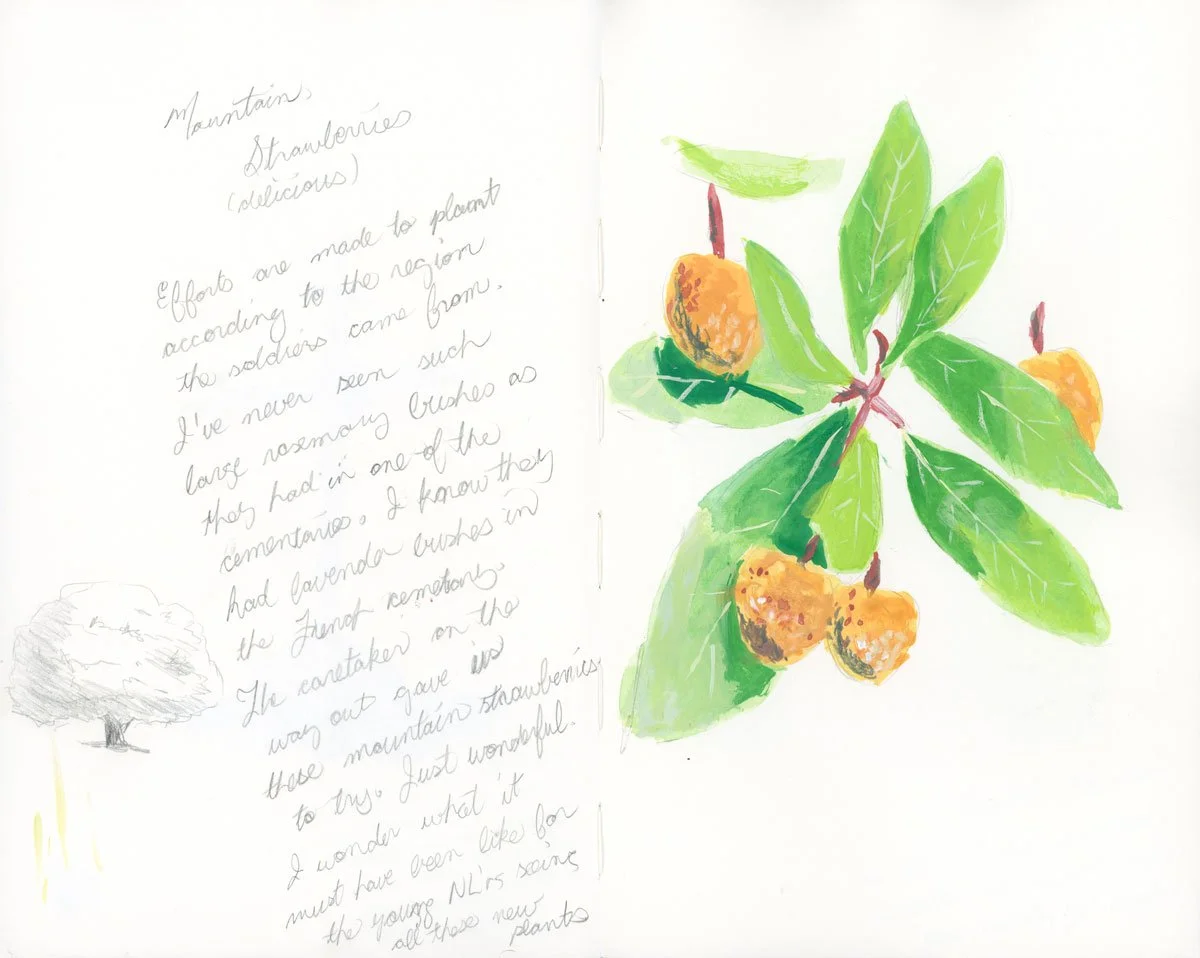 Mountain
Strawberries
(delicious)
Efforts are made to plant
according to the region
the soldiers came from.
I've never seen such
large rosemary bushes as
they had in one of the
cementaries. I know they
had lavender bushes in
the French cemetary.
The caretaker on the
way out gave us
these mountain strawberries
to try. Just wonderful.
I wonder what it
must have been like for
the young NL'rs seeing
all these new
plants